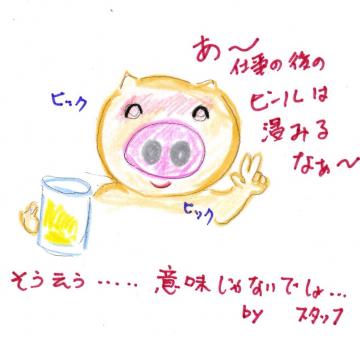 あ〜仕事の後の
ビールは
染みる
なぁ〜
ピック
ピック
そうえう‥‥‥意味じゃないでしょ…
by スタッフ